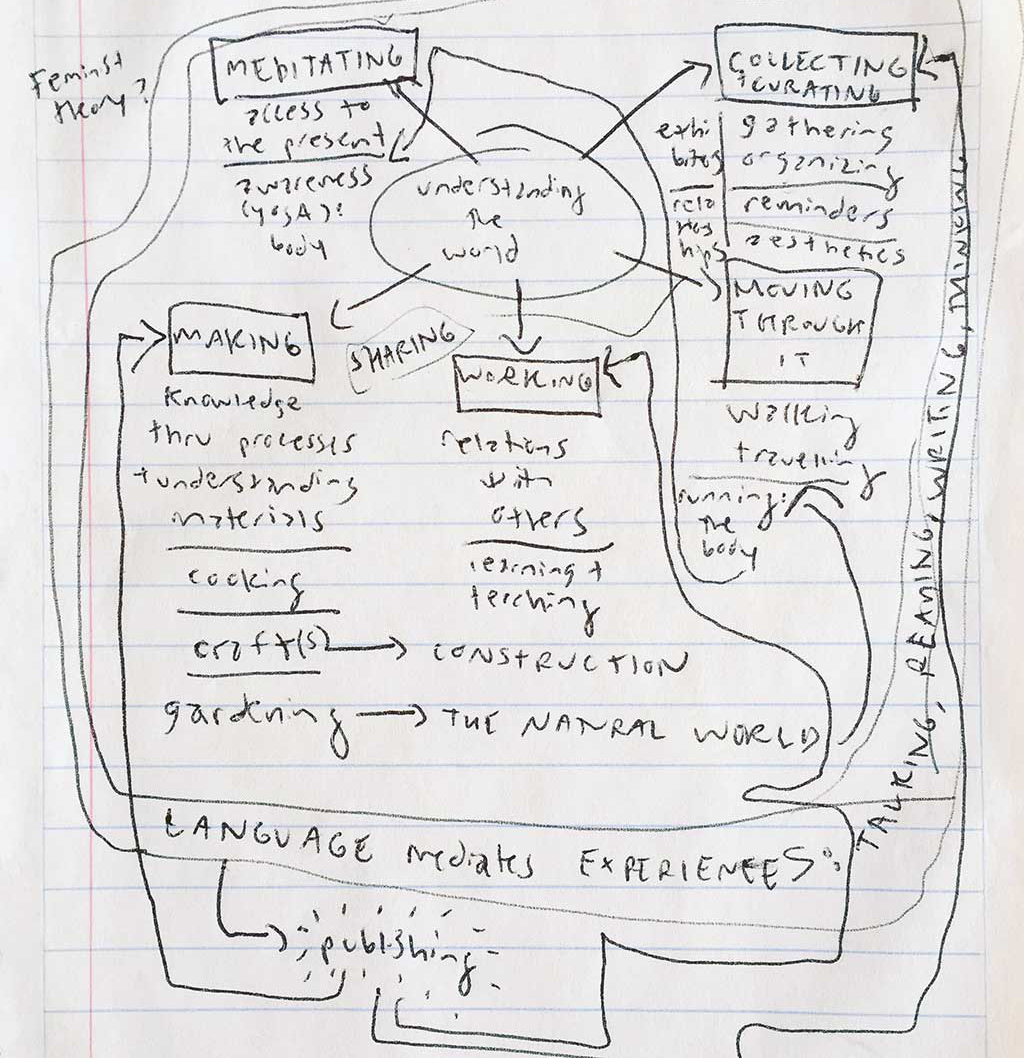 Feminst
theory?
MEDITATING
access to
the present
awareness
(yogA):
body
COLLECTING
+CURATING
exhi
bites
rela
tios
hips
gathering
organizing
reminders
aesthetics
understanding
the
world
MOVING
THROUGH
IT
walking
travelling
running:
the
body
MAKING
knowledge
thru processes
+understanding
materials
cooking
craft(s)
CONSTRUCTION
gardening
THE NATRAL WORLD
SHARING
WORKING
relations
with
others
learning +
teaching
LANGUAGE mediates EXPERIENCES:
TALKING, READING, WRITING,
publishing